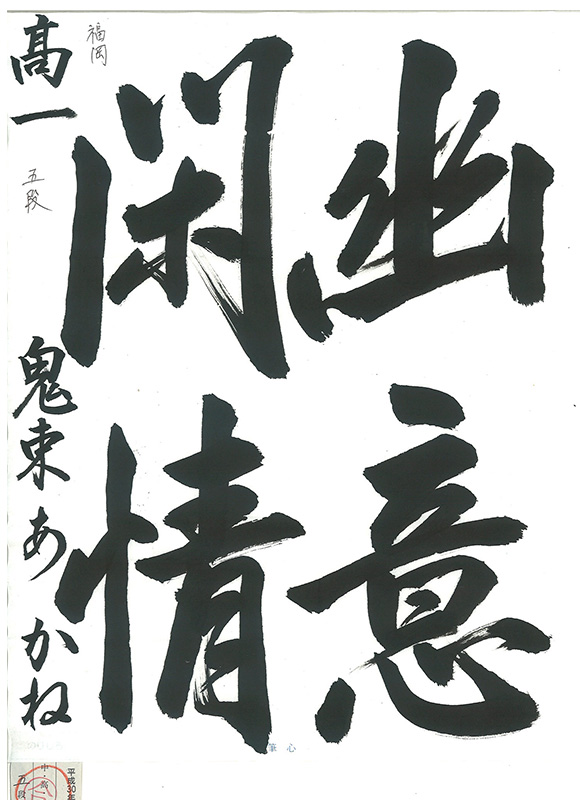 幽意
閑情
福岡
高一 五段 鬼束あかね
筆心
平成30年
中・高
五段